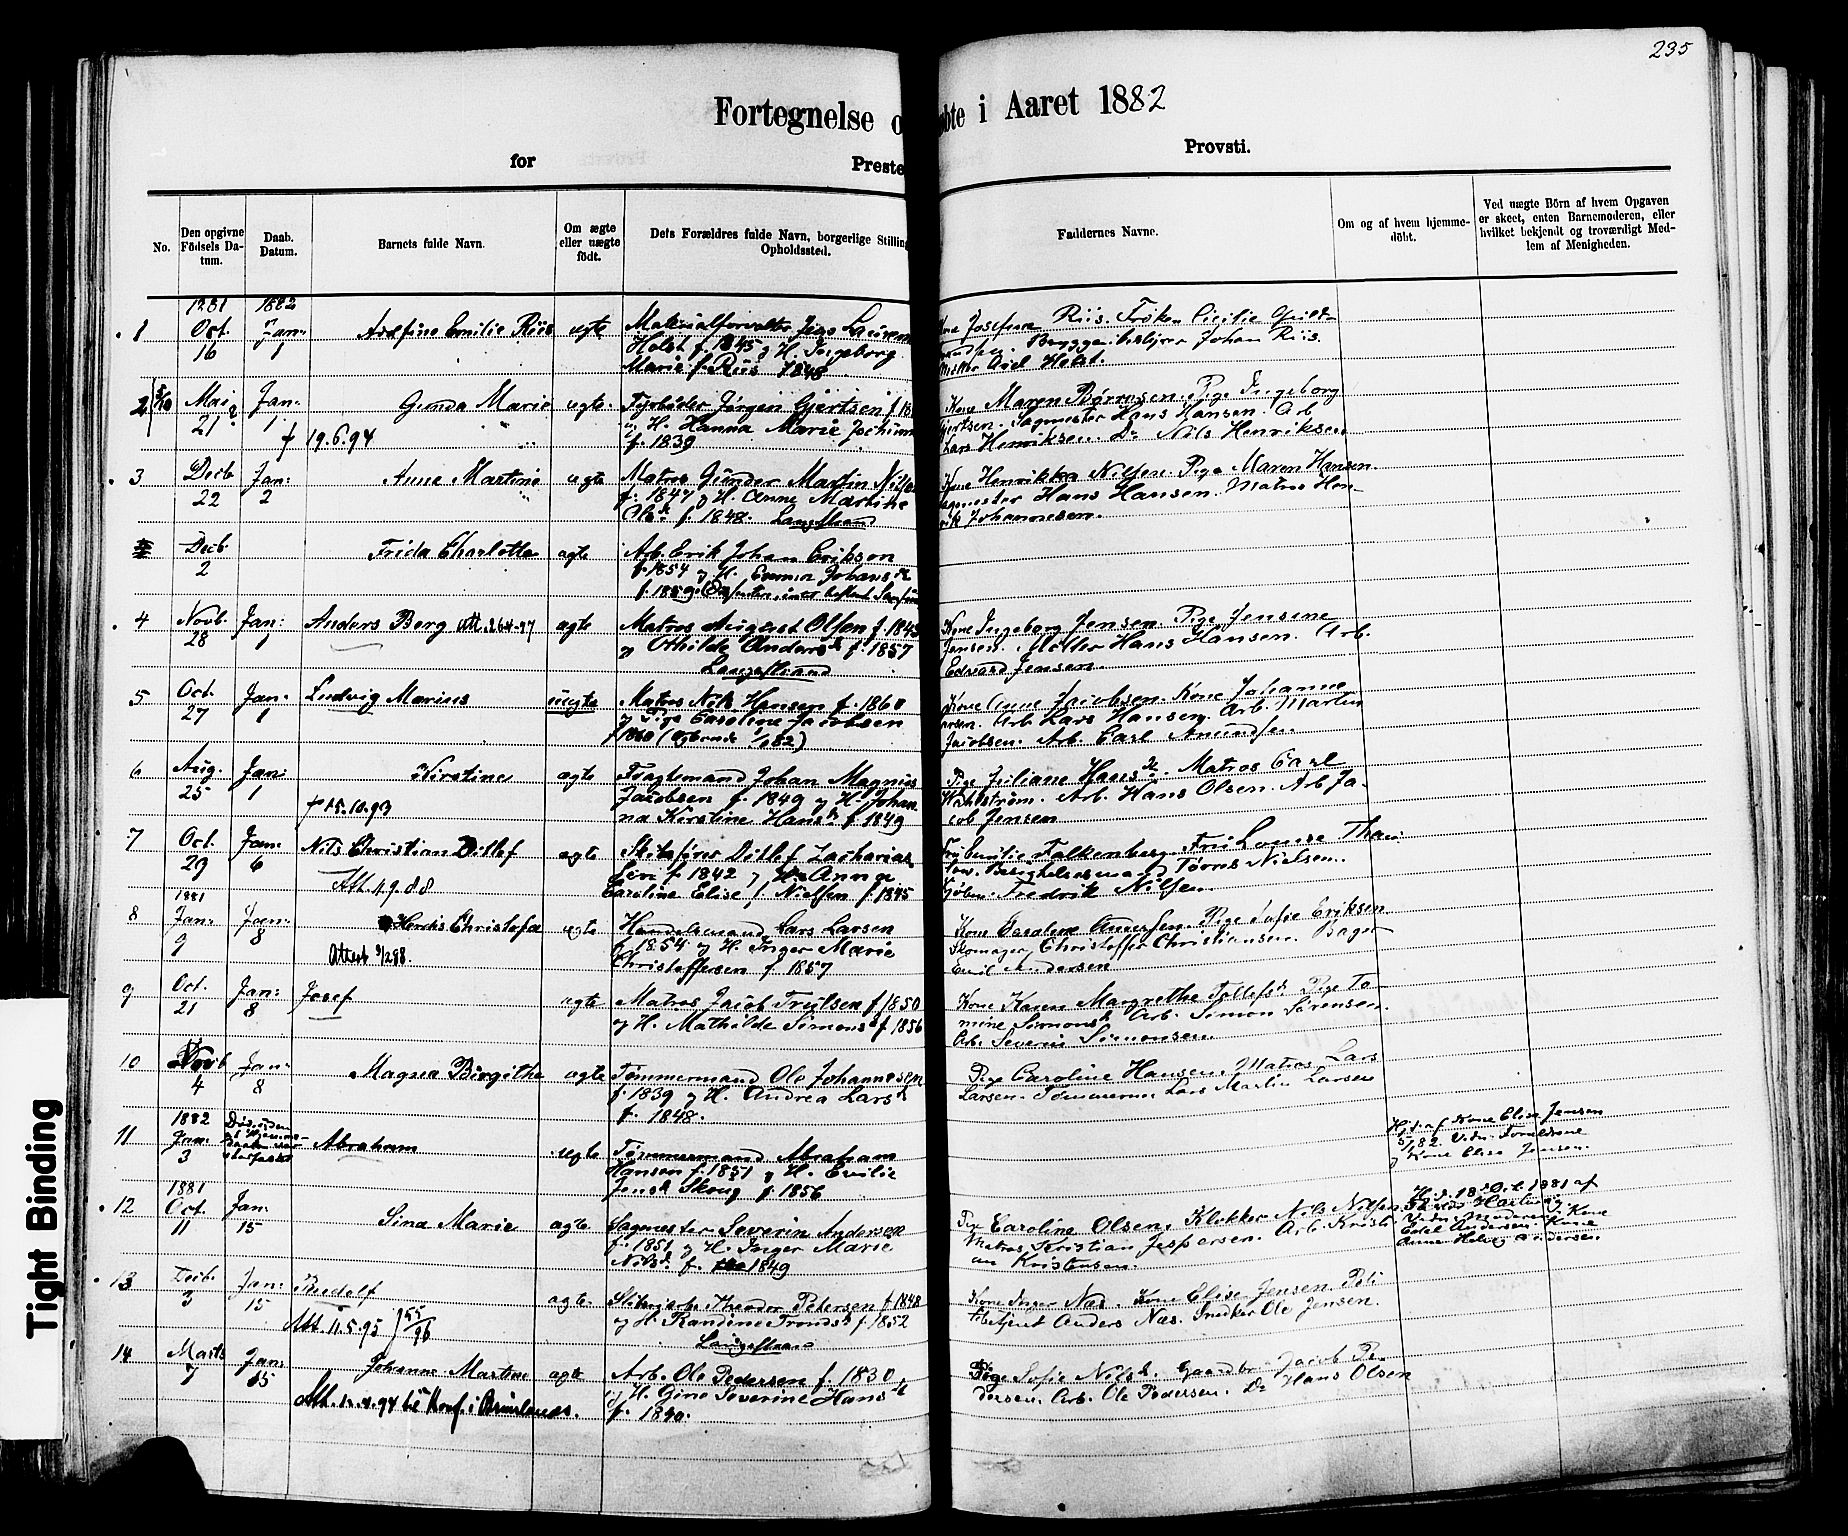 235
Fortegnelse o
øbte i Aaret 1882
for
Preste
Provsti.
No.
Den opgivne Födsels Da-
tum.
Daab.
Datum.
Barnets fulde Navn.
Om ægte
eller uægte
födt.
Dets Forældres fulde Navn, borgerlige Stilling
Opholdssted.
Faddernes Navne.
Om og af hvem hjemme-
döbt.
Ved uægte Börn af hvem Opgaven
er skeet, enten Barnemoderen, eller
hvilket bekjendt og troværdigt Med-
lem af Menigheden.
1 1881 Oct. 16 1882 Jan: 1 Emilie Riis ægte
Materialforvalter Jens
Holst f. 1845 og H. Ingeborg
Marie f. Riis 1848
Kone Josefine Riis. Frøken Cicilie
Bryggeribestyrer Johan Riis.
Axel Holst.
2 Mai 21 Jan: 1 Gunda Marie ægte.
† 19.6.94
Fyrbøder Jørgen Gjertsen f 18
og H. Hanna Marie
f. 1839
Kone Maren Børresen. Pige Ingeborg
Gjertsen. Sagmester Hans Hansen. Arb
Lars Henriksen. Do Nils Henriksen
3 Decb 22 Jan: 2 Anne Martine ægte
Matros Gunder Martin
f. 1847 og H. Anne Martine
Olsd. f. 1848. Langestrand
Kone Henrikka Nilsen. Pige Maren Hansen.
Hans Hansen. Matros Hen-
rik Johannesen.
Decb 2 Frida Charlotte ægte
Arb. Erik Johan Erikson
f. 1854 og H. Emma Johansd.
f. 1859.
4 Novb. 28 Jan: 1 Anders Berg ægte
Matros August Olsen f. 1843
og Othilde Andersd. f. 1857
Langestrand
Kone Ingeborg Jensen. Pige Jensine
Jensen. Hans Hansen. Arb.
Edvard Jensen.
5 Oct. 27 Jan: 1 Ludvig Marius uægte
Matros Nils Hansen f. 1860
og Pige Caroline Jacobsen
f 1860
Kone Anne Jacobsen. Kone Johanne
Arb. Lars Hansen. Arb. Martin
Jacobsen. Arb. Carl Amundsen.
6 Aug. 25 Jan: 1 Kirstine ægte
† 15.10.93
Fragtemand Johan Magnus
Jacobsen f. 1849 og H. Johan
na Kirstine Hansd. f. 1849
Pige Juliane Hansd. Matros Carl
Arb. Hans Olsen. Arb Ja-
cob Jensen
7 Oct. 29 Jan: 6 Nils Christian Ditlef ægte
Att. 1.9.88
Skibsfører Ditlef Zacharias
f. 1842 og H. Anna
Caroline Elise f. Nielsen f. 1845
Falkenberg. Fru Louise
Tørres Nielsen.
Fredrik Nilsen.
8 1881 Jan: 9 Jan: 8 Christofa ægte
Attest
Handelsmand Lars Larsen
f. 1854 og H. Inger Marie
Christoffersen f. 1857
Kone Caroline Andersen. Pige Sofie Eriksen
Skomager Christoffer Christiansen. Bager
Emil Andersen
9 Oct. 21 Jan: 8 Josef ægte
Matros Jacob Trulsen f 1850
og H. Mathilde Simonsd f. 1856
Kone Karen Margrethe Tollefsd. Pige To-
mine Simonsd. Arb. Simon Sørensen.
Arb. Severin Simonsen.
10 4 Jan: 8 Magna Birgithe ægte
Tømmermand Ole Johannesen
f. 1839 og H. Andrea Larsd
f. 1848.
Pige Caroline Hansen. Matros Lars
Larsen. Tømmerm. Lars Martin Larsen
11 1882 Jan: 3 Abraham ægte
Tømmermand Abraham
Hansen f. 1851 og H. Emilie
Jensd. Skoug f. 1856
Hjd. af Kone Elise Jensen
5/1 82. Vidn. Forældrene
og Kone Elise Jensen.
12 1881 Oct. 11 Jan: 15 Sina Marie ægte
Sagmester Severin Andersen
f. 1851 og H. Inger Marie
Nilsd. f. 1849
Pige Caroline Olsen. Klokker Nils Nilsen
Matros Kristian Jespersen. Arb. Kristi
an Kristensen.
Hjd. 18 Oct. 1881 af
Vidn. Moderen, Kone
Edel Andersen. Kone
Anne Helvig Andersen.
13 Decb. 3 Jan: 15 Rudolf ægte
Att. 11.5.95
Theodor Petersen f 1848
og H. Randine Trondsd f. 1852
Langestrand
Kone Inger Næs. Kone Elise Jensen. Poli-
tibetjent Anders Næs. Snedker Ole Jensen.
14 Marts 7 Jan: 15 Johanne Martine ægte
Arb. Ole Pedersen f. 1830,
og H. Gine Severine Hansd.
f. 1840.
Pige Sofie Nilsd. Gaardbr. Jacob Pe-
dersen. Arb. Ole Pedersen. Do Hans Olsen
Tight Binding